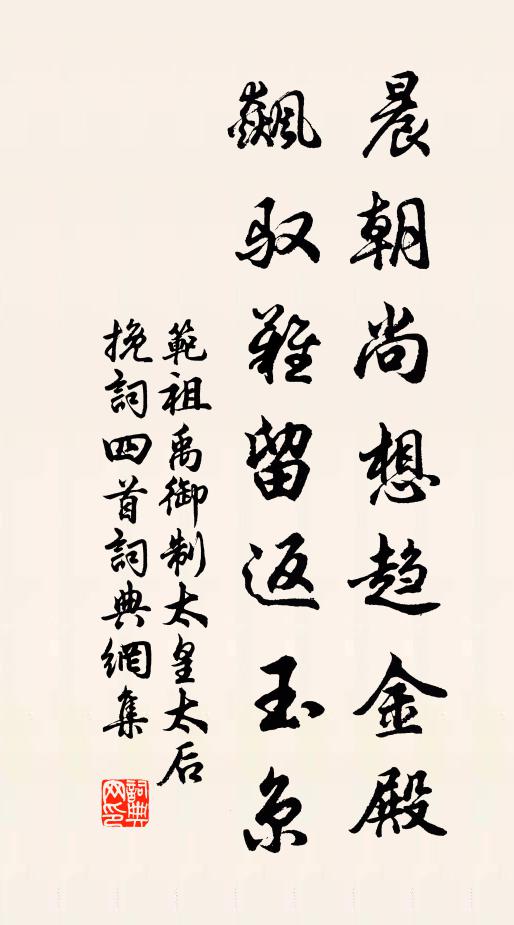 晨朝尚想趋金殿
飙驭难留返玉京
範祖禹御制太皇太后
挽詞四首詞典網集
詞典
网印